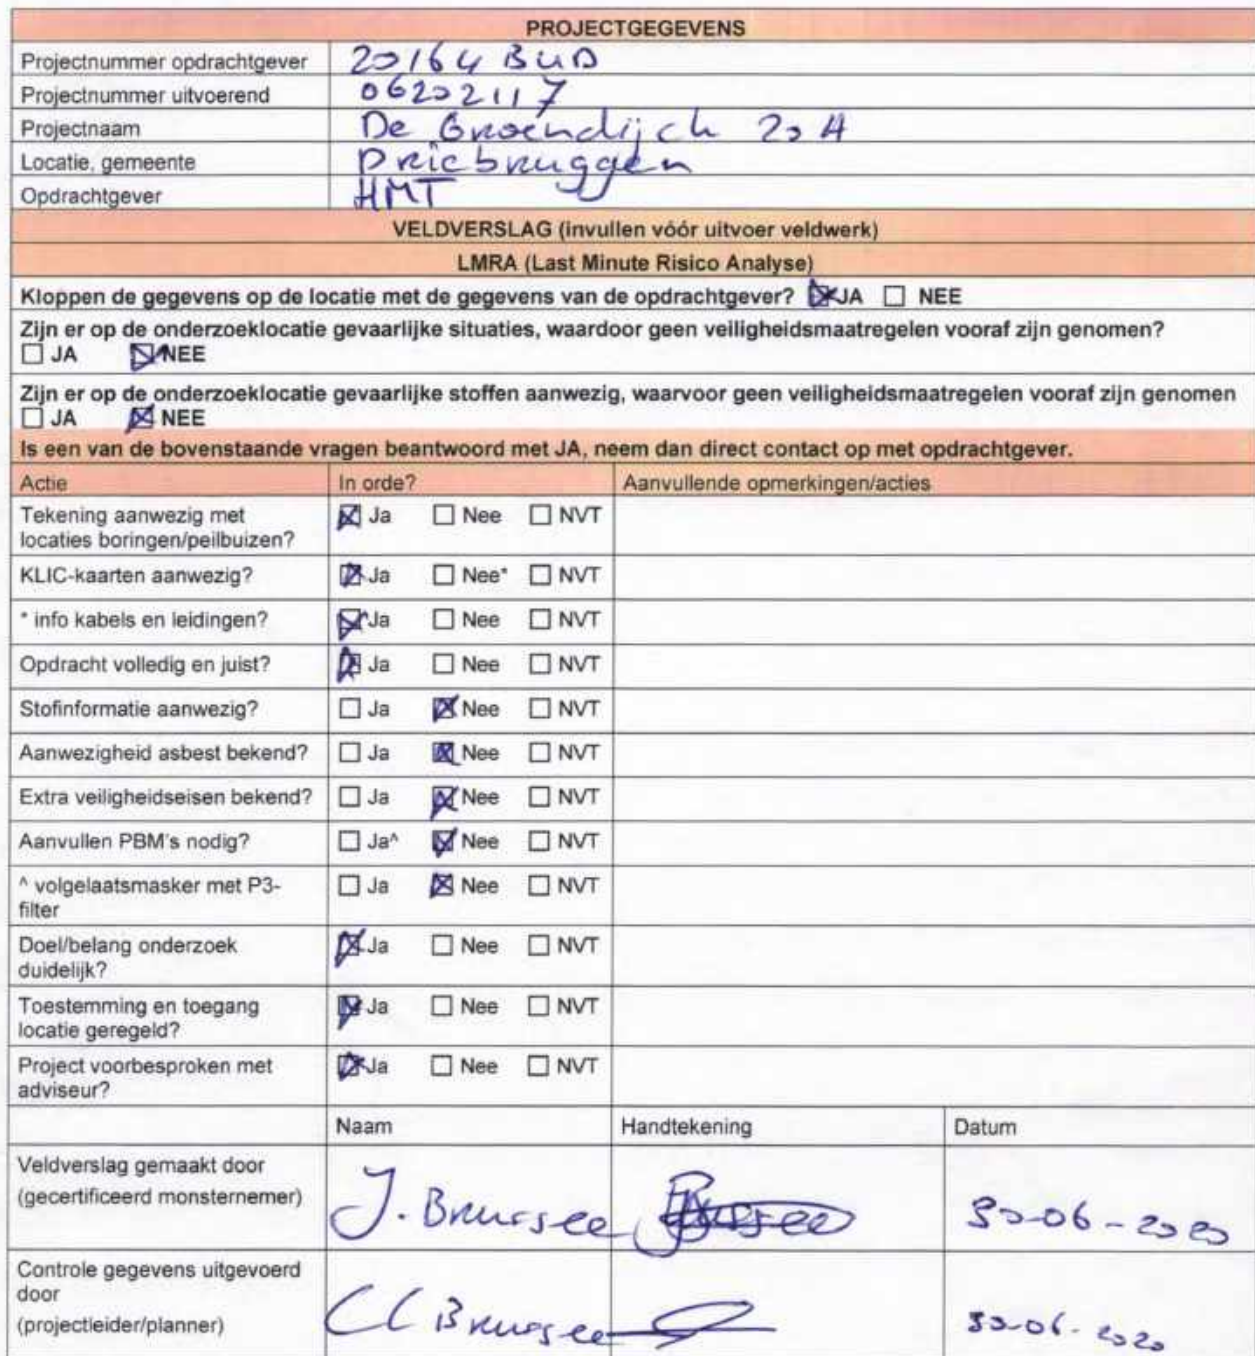 PROJECTGEGEVENS
Projectnummer opdrachtgever 20164 BUD
Projectnummer uitvoerend 06202117
Projectnaam De Groendijck 20A
Locatie, gemeente Driebruggen
Opdrachtgever HMT
VELDVERSLAG (invullen vóór uitvoer veldwerk)
LMRA (Last Minute Risico Analyse)
Kloppen de gegevens op de locatie met de gegevens van de opdrachtgever? ☒ JA ☐ NEE
Zijn er op de onderzoeklocatie gevaarlijke situaties, waardoor geen veiligheidsmaatregelen vooraf zijn genomen?
☐ JA ☒ NEE
Zijn er op de onderzoeklocatie gevaarlijke stoffen aanwezig, waarvoor geen veiligheidsmaatregelen vooraf zijn genomen
☐ JA ☒ NEE
Is een van de bovenstaande vragen beantwoord met JA, neem dan direct contact op met opdrachtgever.
Actie In orde? Aanvullende opmerkingen/acties
Tekening aanwezig met ☒ Ja ☐ Nee ☐ NVT
locaties boringen/peilbuizen?
KLIC-kaarten aanwezig? ☒ Ja ☐ Nee* ☐ NVT
* info kabels en leidingen? ☒ Ja ☐ Nee ☐ NVT
Opdracht volledig en juist? ☒ Ja ☐ Nee ☐ NVT
Stofinformatie aanwezig? ☐ Ja ☒ Nee ☐ NVT
Aanwezigheid asbest bekend? ☐ Ja ☒ Nee ☐ NVT
Extra veiligheidseisen bekend? ☐ Ja ☒ Nee ☐ NVT
Aanvullen PBM's nodig? ☐ Ja^ ☒ Nee ☐ NVT
^ volgelaatsmasker met P3- ☐ Ja ☒ Nee ☐ NVT
filter
Doel/belang onderzoek ☒ Ja ☐ Nee ☐ NVT
duidelijk?
Toestemming en toegang ☒ Ja ☐ Nee ☐ NVT
locatie geregeld?
Project voorbesproken met ☒ Ja ☐ Nee ☐ NVT
adviseur?
Naam Handtekening Datum
Veldverslag gemaakt door
(gecertificeerd monsternemer) J. Brussee 30-06-2020
Controle gegevens uitgevoerd
door
(projectleider/planner) Brussee 30-06-2020